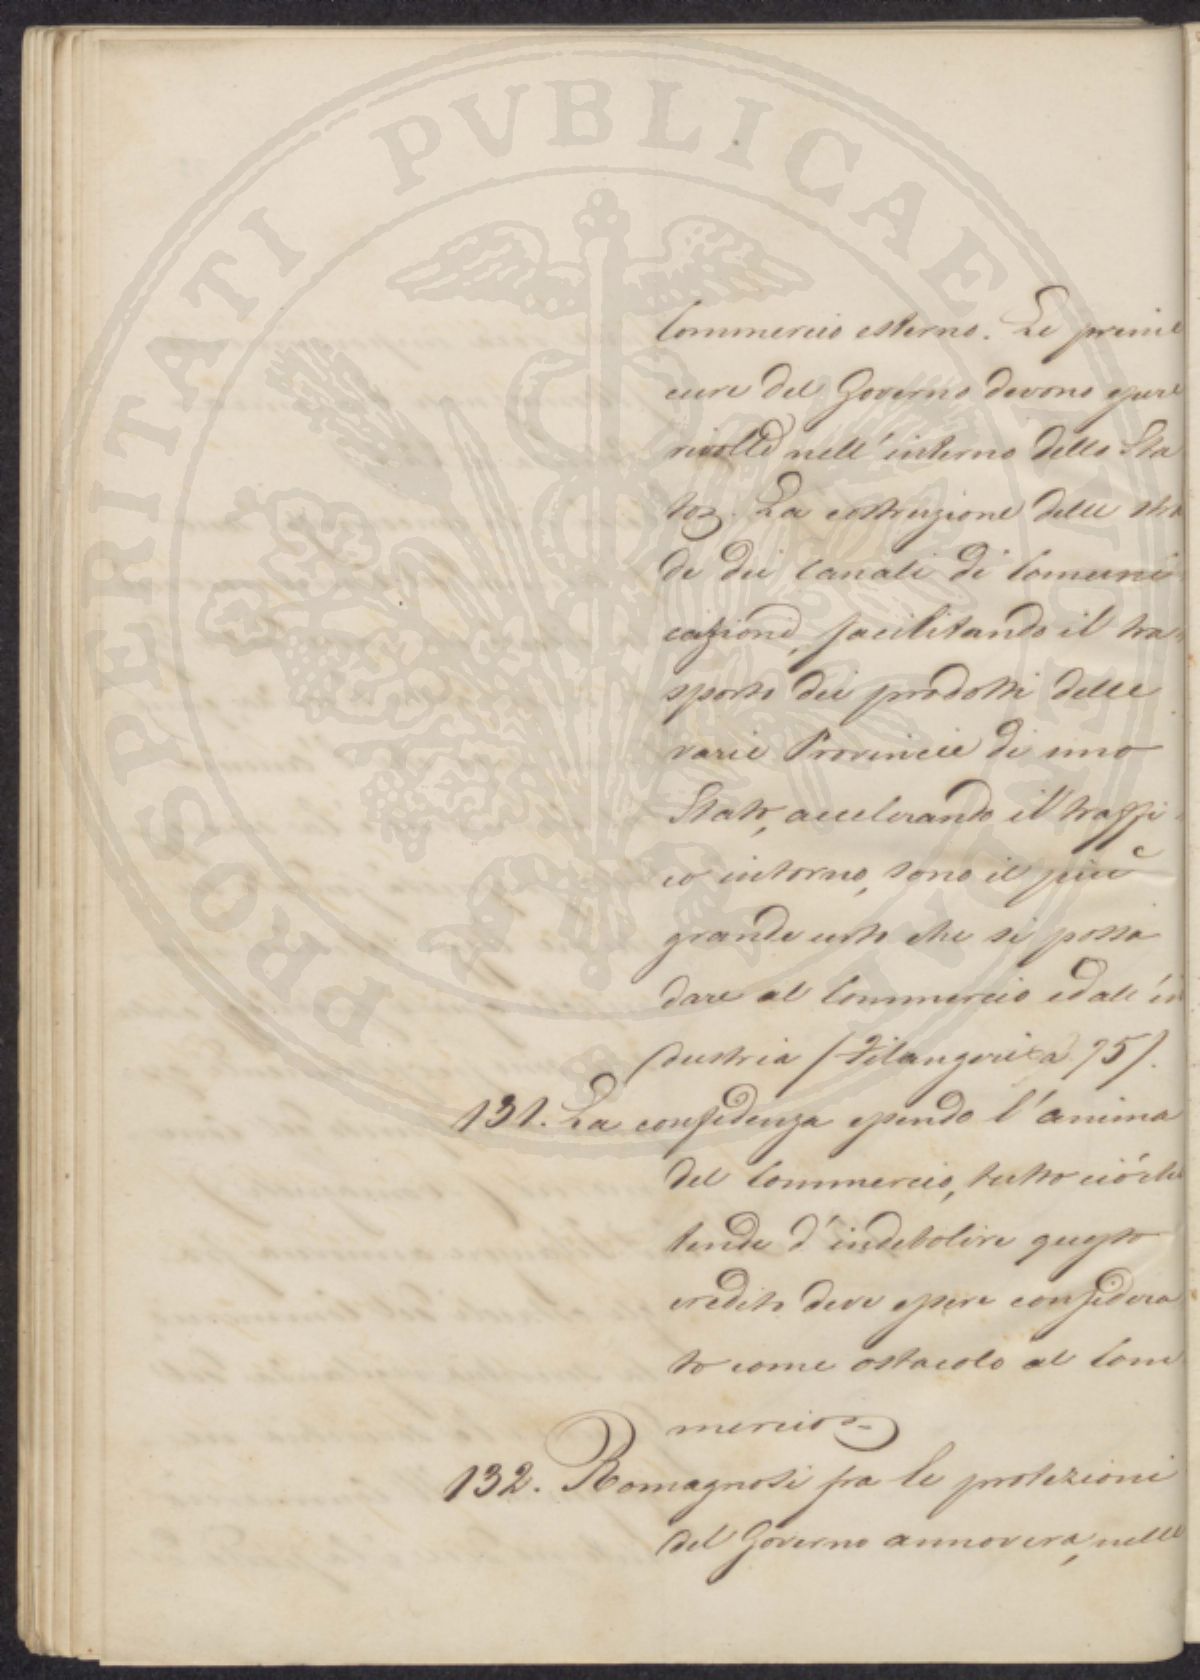 PROSPERITATI PVBLICAE
Commercio esterno. Le prime
cure del Governo devono essere
rivolte nell'interno dello Sta
to. La costruzione delle stra
de dei canali di Comuni
cazione, facilitando il tra
sporto dei prodotti delle
varie Provincie di uno
Stato, accelerando il traffi
co interno, sono il più
grande urto che si possa
dare al Commercio ed all'in
dustria (Filangeri 75).
131. La confidenza essendo l'anima
del Commercio, tutto ciò che
tende d'indebolire questo
credito deve essere considera
to come ostacolo al Com
mercio
132. Romagnosi fra le protezioni
del Governo annovera, nelle